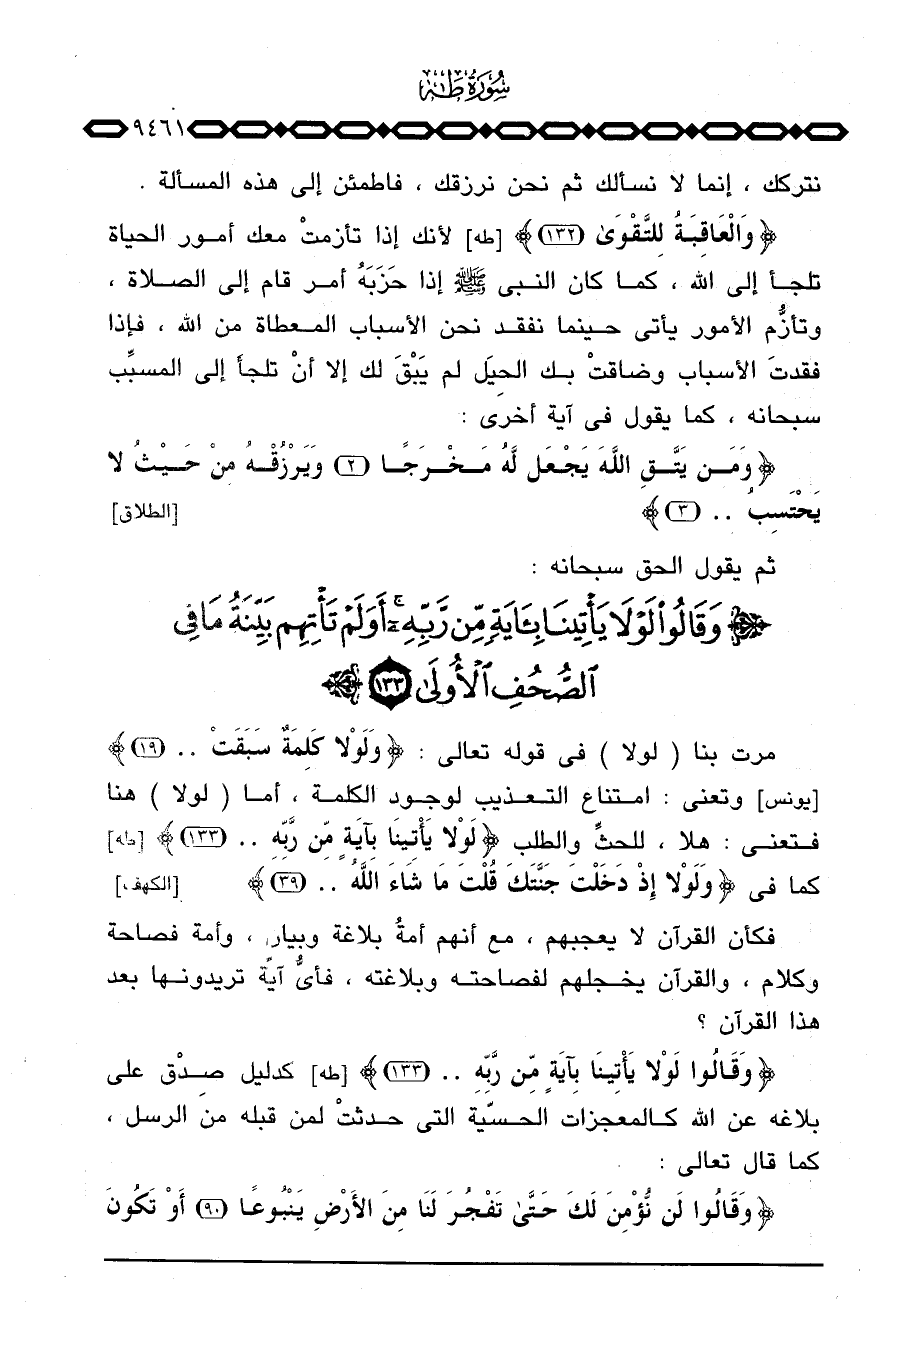 سُورَةُ طٰهٰ
٩٤٦١
نتركك ، إنما لا نسألك ثم نحن نرزقك ، فاطمئن إلى هذه المسألة .
﴿ وَالْعَاقِبَةُ لِلتَّقْوَىٰ (١٣٢) ﴾ [طه] لأنك إذا تأزمتْ معك أمور الحياة
تلجأ إلى الله ، كما كان النبى ﷺ إذا حَزَبَهُ أمر قام إلى الصلاة ،
وتأزُّم الأمور يأتى حينما نفقد نحن الأسباب المعطاة من الله ، فإذا
فقدتَ الأسباب وضاقتْ بك الحيَل لم يَبْقَ لك إلا أنْ تلجأ إلى المسبِّب
سبحانه ، كما يقول فى آية أخرى :
﴿ وَمَن يَتَّقِ اللَّهَ يَجْعَل لَّهُ مَخْرَجًا (٢) وَيَرْزُقْهُ مِنْ حَيْثُ لا
يَحْتَسِبُ .. (٣) ﴾ [الطلاق]
ثم يقول الحق سبحانه :
﴿ وَقَالُوا۟ لَوْلَا يَأْتِينَا بِـَٔايَةٍ مِّن رَّبِّهِۦٓ ۚ أَوَلَمْ تَأْتِهِم بَيِّنَةُ مَا فِى
ٱلصُّحُفِ ٱلْأُولَىٰ ١٣٣ ﴾
مرت بنا ( لولا ) فى قوله تعالى : ﴿ وَلَوْلا كَلِمَةٌ سَبَقَتْ .. (١٩) ﴾
[يونس] وتعنى : امتناع التعذيب لوجود الكلمة ، أما ( لولا ) هنا
فتعنى : هلا ، للحثِّ والطلب ﴿ لَوْلا يَأْتِينَا بِآيَةٍ مِّن رَّبِّهِ .. (١٣٣) ﴾ [طه]
كما فى ﴿ وَلَوْلا إِذْ دَخَلْتَ جَنَّتَكَ قُلْتَ مَا شَاءَ اللَّهُ .. (٣٩) ﴾ [الكهف]
فكأن القرآن لا يعجبهم ، مع أنهم أمةُ بلاغة وبيان ، وأمة فصاحة
وكلام ، والقرآن يخجلهم لفصاحته وبلاغته ، فأىُّ آيةٍ تريدونها بعد
هذا القرآن ؟
﴿ وَقَالُوا لَوْلا يَأْتِينَا بِآيَةٍ مِّن رَّبِّهِ .. (١٣٣) ﴾ [طه] كدليل صدْق على
بلاغه عن الله كالمعجزات الحسِّية التى حدثتْ لمن قبله من الرسل ،
كما قال تعالى :
﴿ وَقَالُوا لَن نُّؤْمِنَ لَكَ حَتَّىٰ تَفْجُرَ لَنَا مِنَ الأَرْضِ يَنْبُوعًا (٩٠) أَوْ تَكُونَ